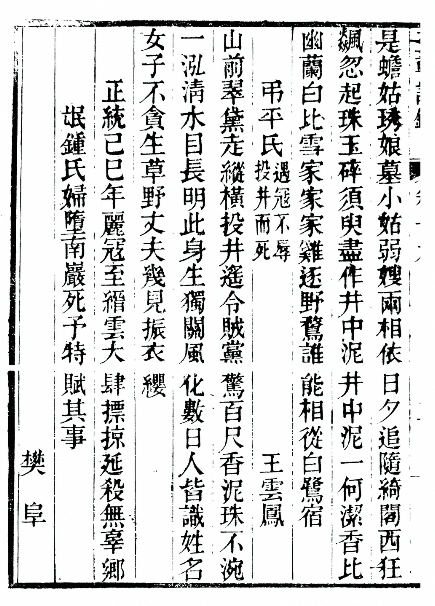 是蟾姑琇娘墓小姑弱嫂兩相依日夕追隨綺閣西狂
飆忽起珠玉碎須臾盡作井中泥井中泥一何潔香比
幽蘭白比雪家家家雞逐野鶩誰能相從白鷺宿
弔平氏遇冦不辱投井而死 王雲鳳
山前翠黛走縱橫投井遙令賊黨驚百尺香泥珠不涴
一泓清水目長明此身生獨關風化數日人皆識姓名
女子不貪生草野丈夫幾見振衣纓
正統己巳年麗冦至縉雲大肆摽掠延殺無辜鄉
氓鍾氏婦墮南巖死予特賦其事
樊阜